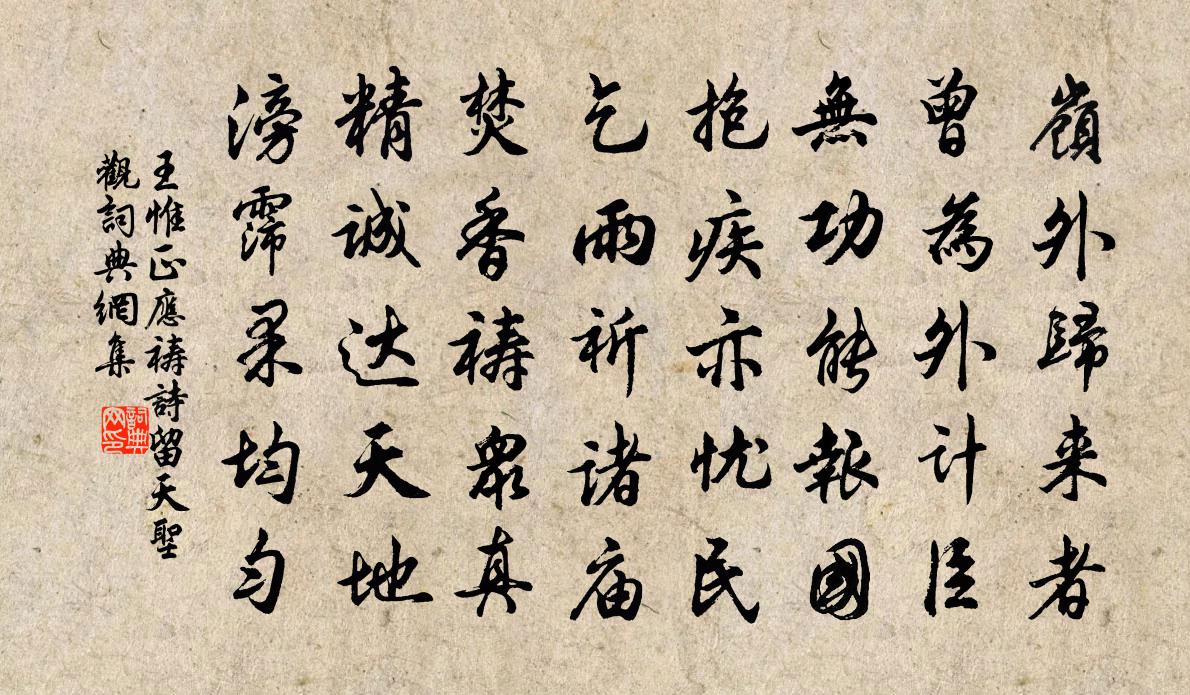 嶺外歸来者
曾為外計臣
無功能報國
抱疾亦忧民
乞雨祈诸庙
焚香禱衆真
精誠达天地
滂霈果均匀
王惟正應禱詩留天聖
觀詞典網集
詞典网印